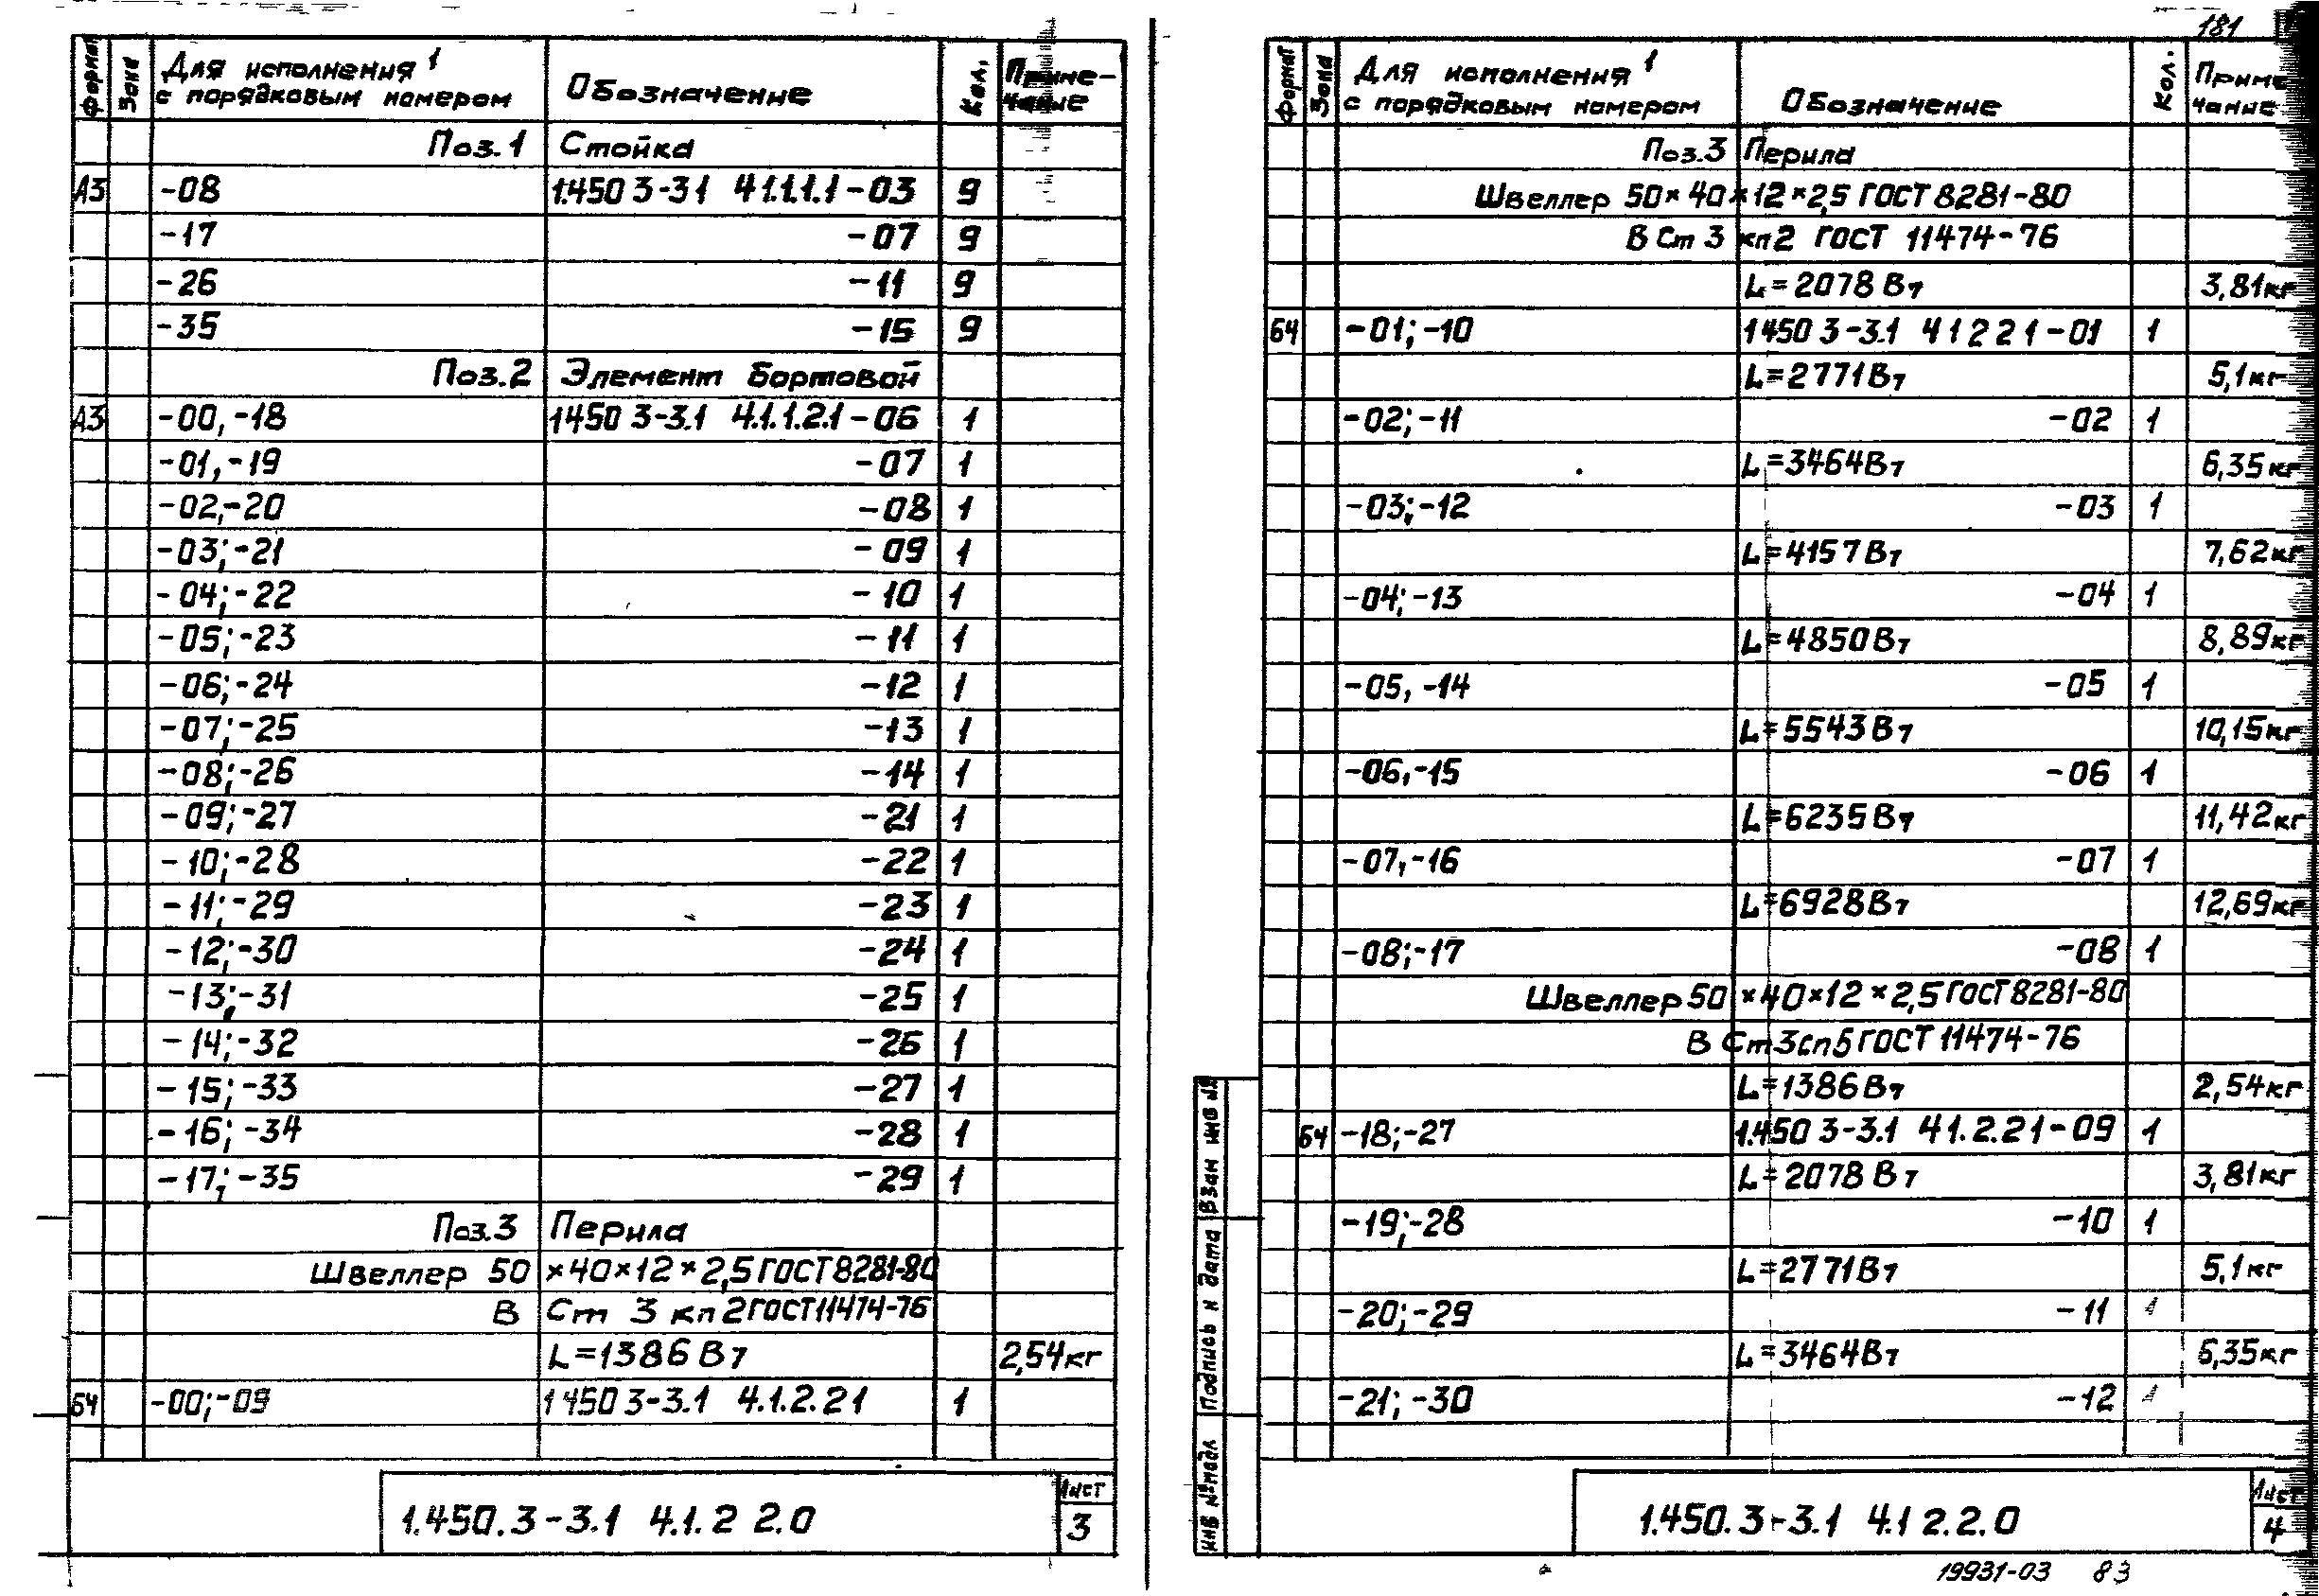 181
Формат Зона Для исполнения 1 с порядковым номером Обозначение Кол. Примечание
Поз.1 Стойка
А3 -08 1.450 3-3 1 4 1.1.1.1-03 9
-17 -07 9
-26 -11 9
-35 -15 9
Поз.2 Элемент бортовой
А3 -00, -18 1 450 3-3.1 4.1.1.2.1-06 1
-01, -19 -07 1
-02,-20 -08 1
-03; -21 -09 1
-04; -22 -10 1
-05; -23 -11 1
-06; -24 -12 1
-07; -25 -13 1
-08; -26 -14 1
-09; -27 -21 1
-10; -28 -22 1
-11; -29 -23 1
-12; -30 -24 1
-13; -31 -25 1
-14; -32 -26 1
-15; -33 -27 1
-16; -34 -28 1
-17; -35 -29 1
Поз.3 Перила
Швеллер 50×40×12×2,5 ГОСТ 8281-80
В Ст 3 кп 2 ГОСТ 11474-76
L=1386 Вт 2,54кг
Б4 -00; -09 1 450 3-3.1 4.1.2.21 1
1.450.3-3.1 4.1.2 2.0
Лист
3
Формат Зона Для исполнения 1 с порядковым номером Обозначение Кол. Примечание
Поз.3 Перила
Швеллер 50×40×12×2,5 ГОСТ 8281-80
В Ст 3 кп2 ГОСТ 11474-76
L=2078 Вт 3,81кг
Б4 -01; -10 1 450 3-3.1 4 1 2 2 1-01 1
L=2771Вт 5,1кг
-02; -11 -02 1
L=3464Вт 6,35кг
-03; -12 -03 1
L=4157Вт 7,62кг
-04; -13 -04 1
L=4850Вт 8,89кг
-05, -14 -05 1
L=5543Вт 10,15кг
-06,-15 -06 1
L=6235Вт 11,42кг
-07,-16 -07 1
L=6928Вт 12,69кг
-08;-17 -08 1
Швеллер 50×40×12×2,5 ГОСТ 8281-80
В Ст3сп5 ГОСТ 11474-76
L=1386Вт 2,54кг
Б4 -18; -27 1.450 3-3.1 4 1. 2.21-09 1
L=2078 Вт 3,81кг
-19; -28 -10 1
L=2771Вт 5,1кг
-20; -29 -11 1
L=3464Вт 6,35кг
-21; -30 -12 1
Инв №подл Подпись и дата Взам инв №
1.450.3-3.1 4.1 2.2.0
Лист
4
19931-03 83